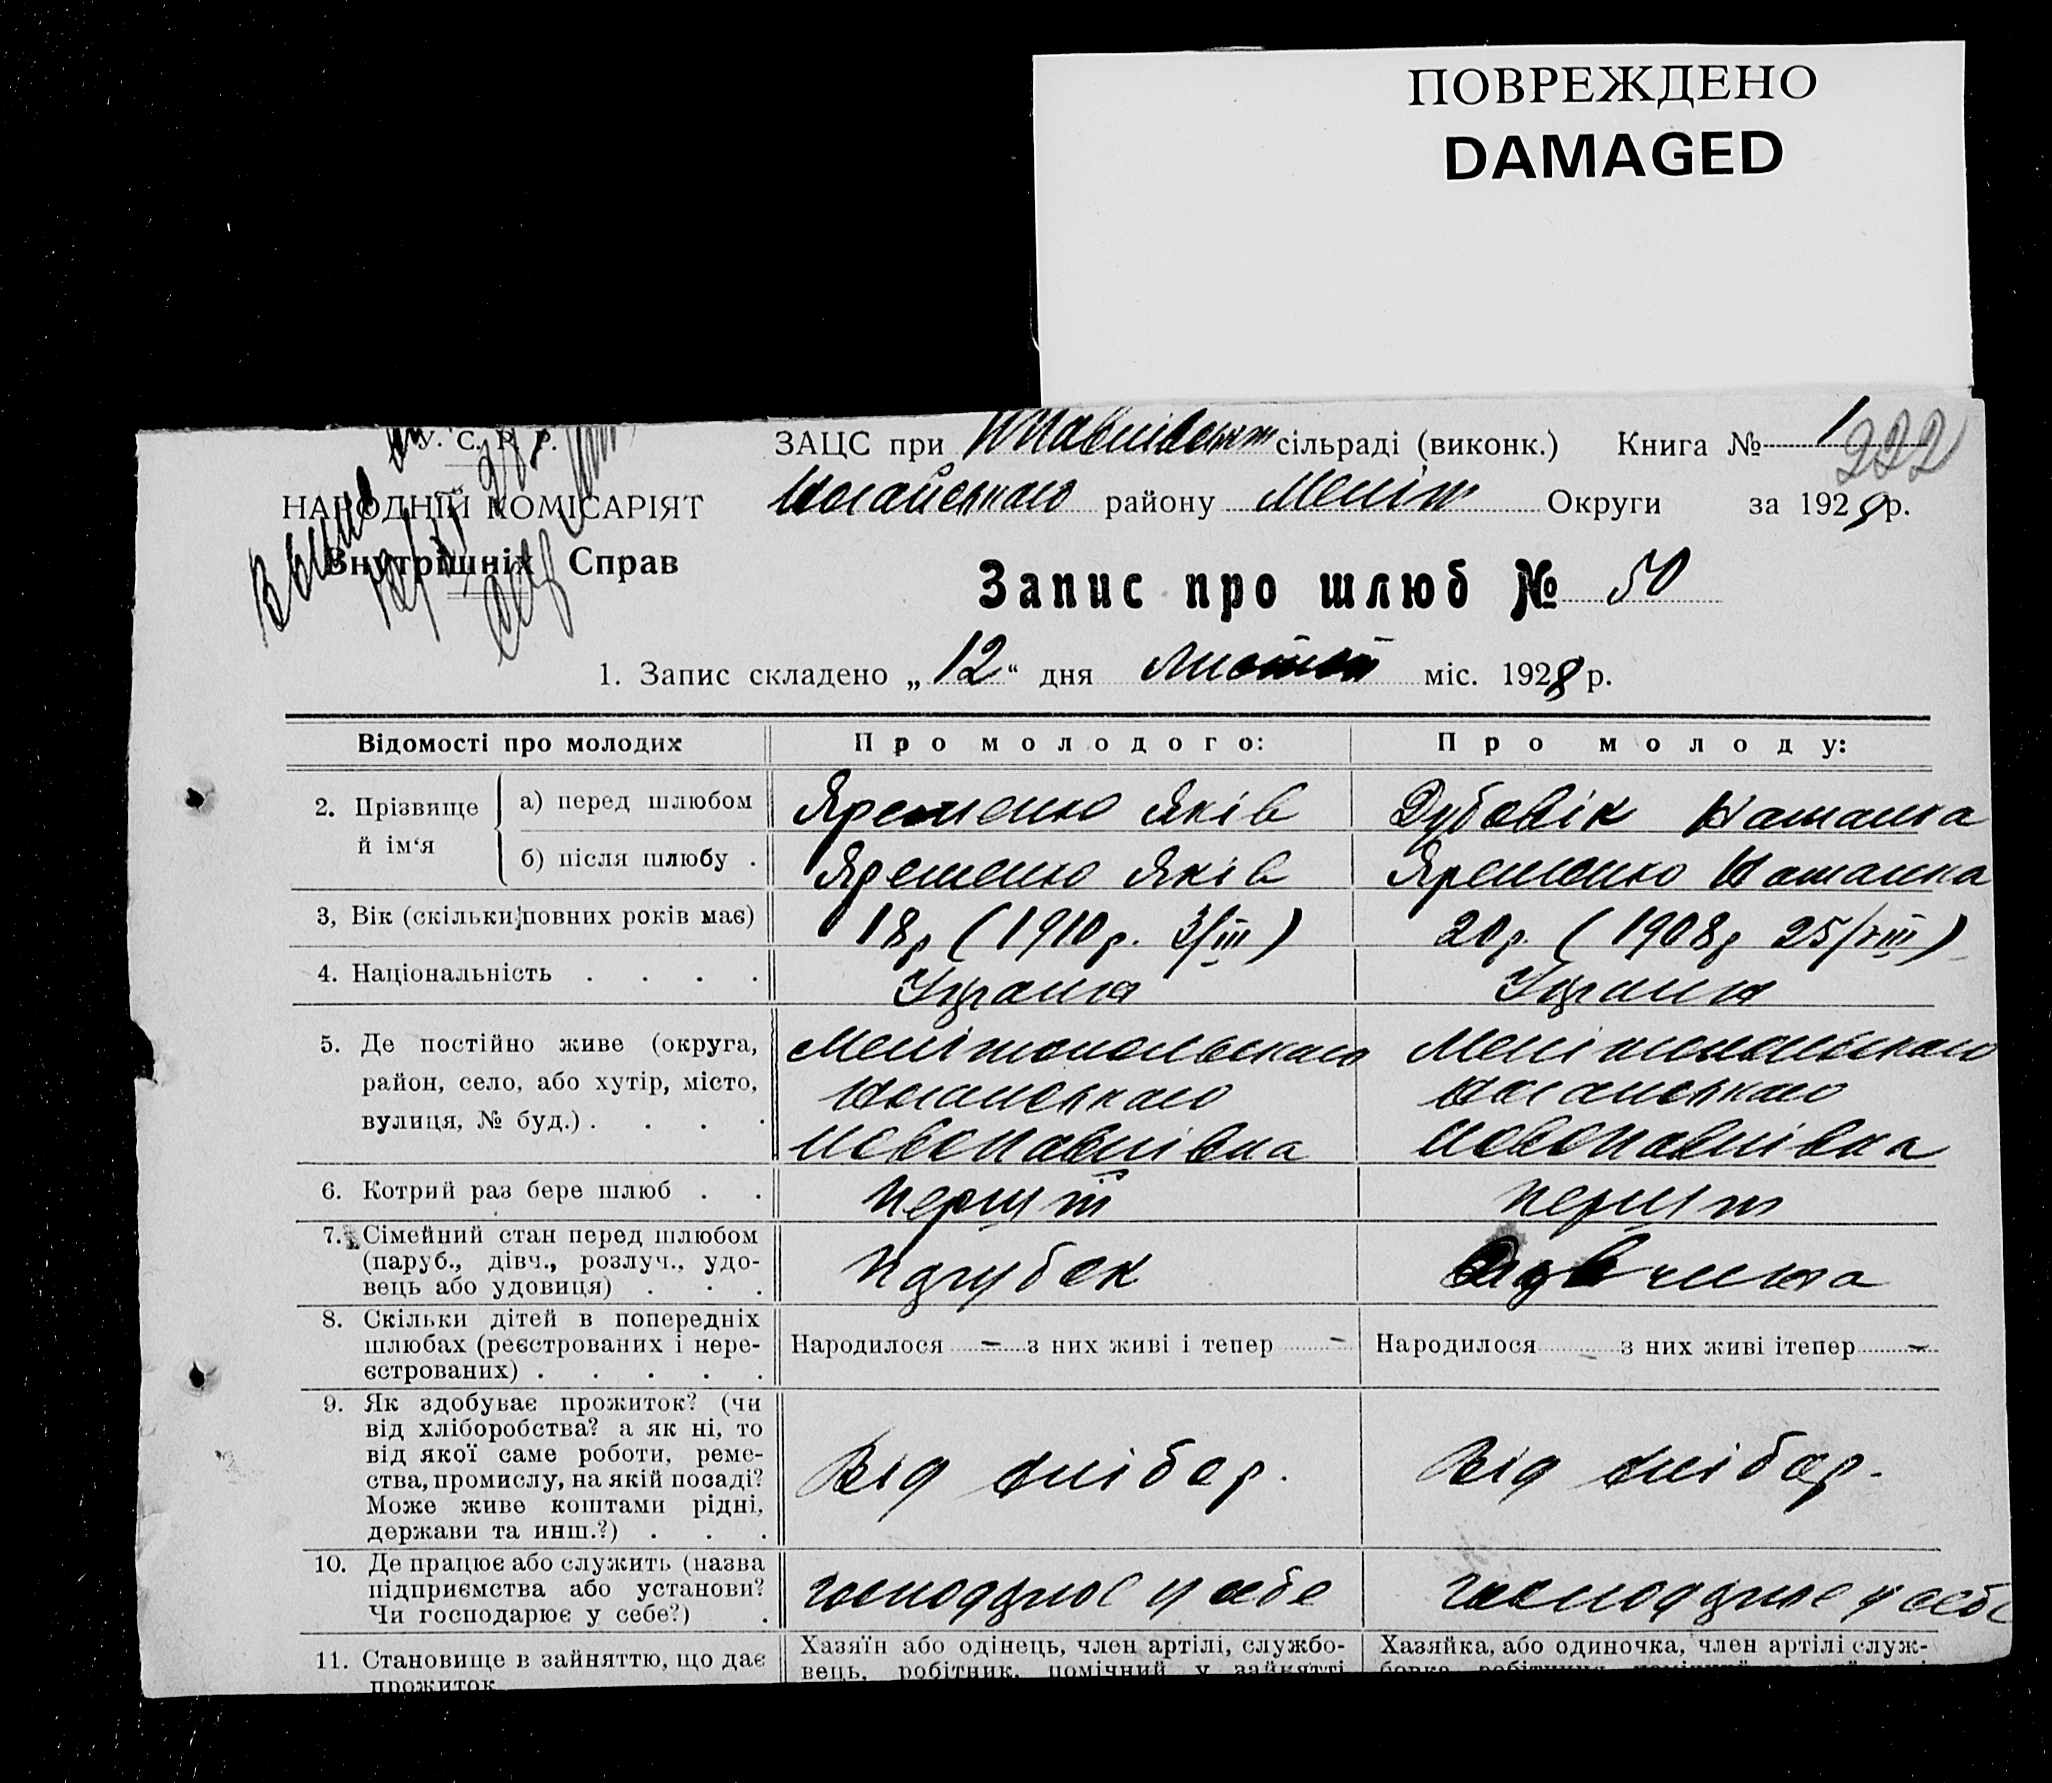 ПОВРЕЖДЕНО
DAMAGED
У. С. Р. Р.
ЗАЦС при сільраді (виконк.) Книга № 1
222
НАРОДНІЙ КОМІСАРІЯТ
Ногайського району Меліт Округи за 1928 р.
Внутрішніх Справ
Запис про шлюб № 50
1. Запис складено „ 12 “ дня міс. 1928 р.
Відомості про молодих
Про молодого:
Про молоду:
2. Прізвище й ім‘я
а) перед шлюбом
Яременко Яків
Дубовік Наталка
б) після шлюбу .
Яременко Яків
Яременко Наталка
3, Вік (скільки повних років має)
18р (1910р. 3/III)
20р. (1908р 25/VIII)
4. Національність . . . .
Україн
Україн
5. Де постійно живе (округа,
район, село, або хутір, місто,
вулиця, № буд.) . . . .
Мелітопольского
Ногайського
Новопавлівка
Мелітопольского
Ногайського
Новопавлівка
6. Котрий раз бере шлюб . .
перший
перший
7. Сімейний стан перед шлюбом
(паруб., дівч., розлуч., удо-
вець або удовиця) . . .
Парубок
8. Скільки дітей в попередніх
шлюбах (реєстрованих і нере-
єстрованих) . . . . .
Народилося – з них живі і тепер –
Народилося – з них живі ітепер –
9. Як здобуває прожиток? (чи
від хліборобства? а як ні, то
від якої саме роботи, реме-
ства, промислу, на якій посаді?
Може живе коштами рідні,
держави та инш.?) . . .
Від хлібор.
Від хлібор.
10. Де працює або служить (назва
підприємства або установи?
Чи господарює у себе?) .
господарює у себе
господарює у себе
11. Становище в зайняттю, що дає
прожиток
Хазяїн або одінець, член артілі, службо-
вець, робітник, помічний у зайнятті
Хазяйка, або одиночка, член артілі служ-
бовка